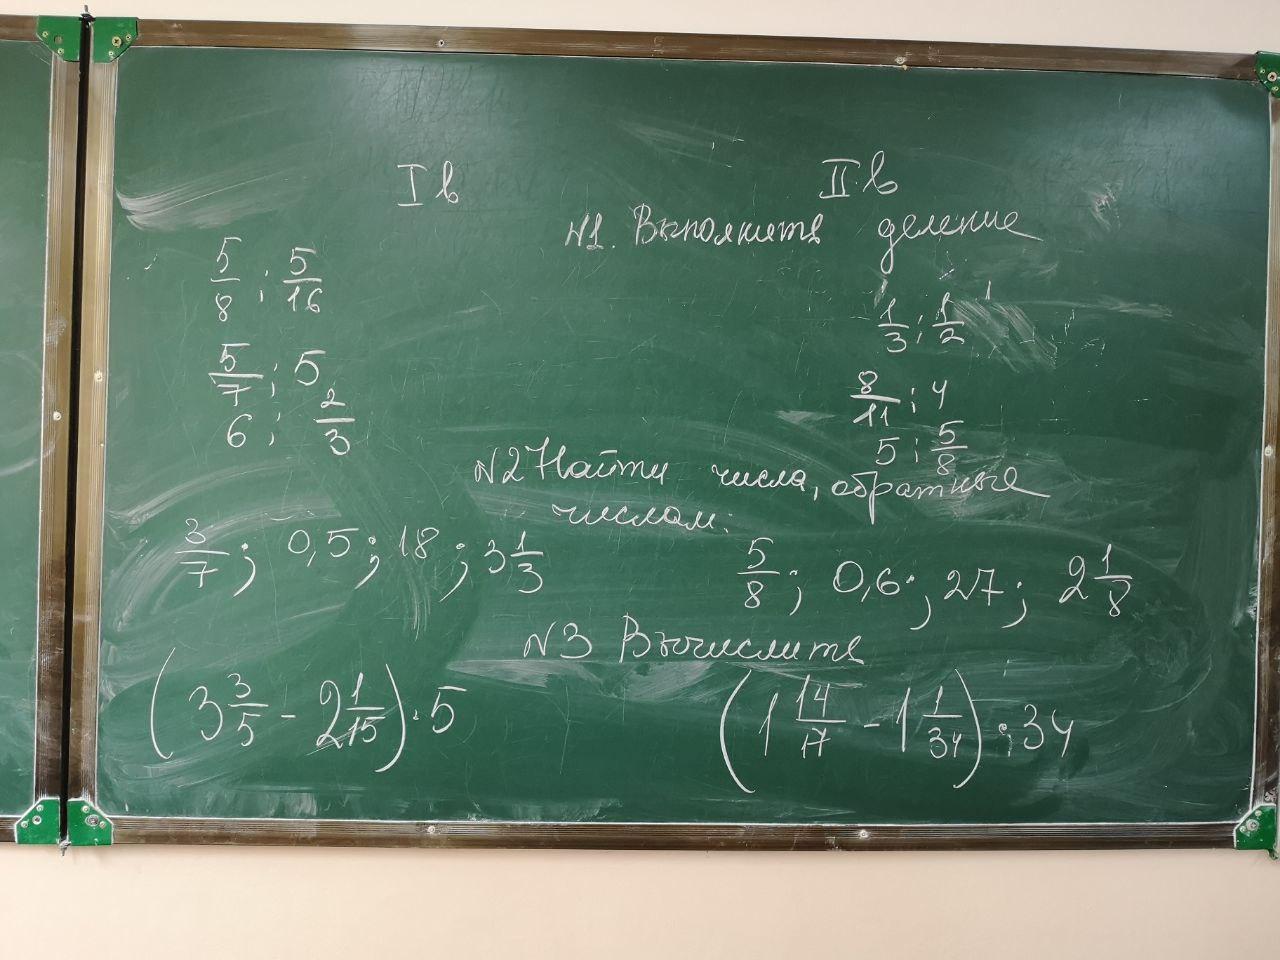 I в II в
№1. Выполнить деление
5/8 : 5/16
1/3 : 1/2
5/7 : 5
8/11 : 4
6 : 2/3
5 : 5/8
№2 Найти числа, обратные
числам:
3/7 ; 0,5 ; 18 ; 3 1/3
5/8 ; 0,6 ; 27 ; 2 1/8
№3 Вычислить
(3 3/5 - 2 1/15) · 5
(1 14/17 - 1 1/34) : 34